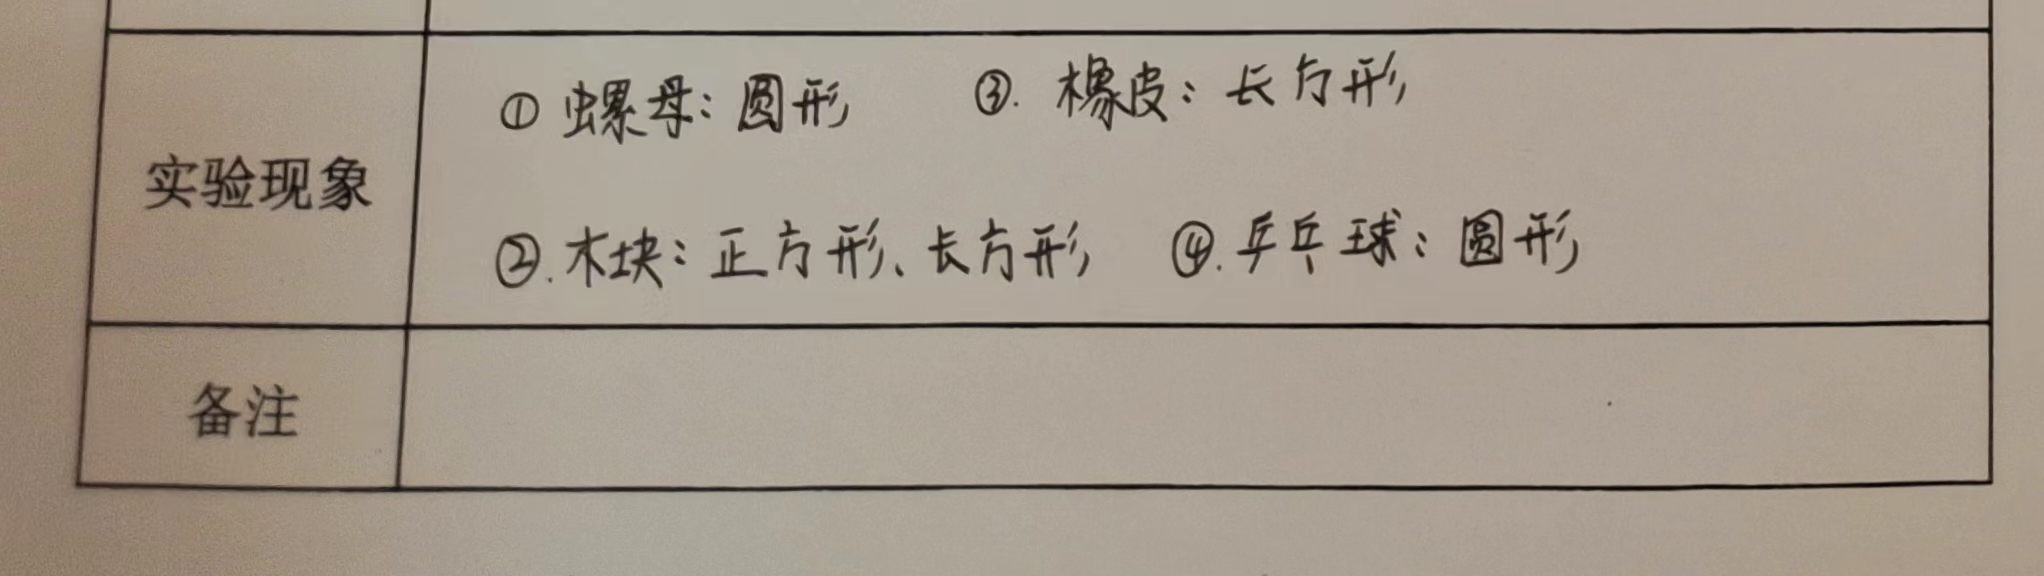 ① 螺母：圆形 ③. 橡皮：长方形
实验现象
②. 木块：正方形、长方形 ④. 乒乓球：圆形
备注